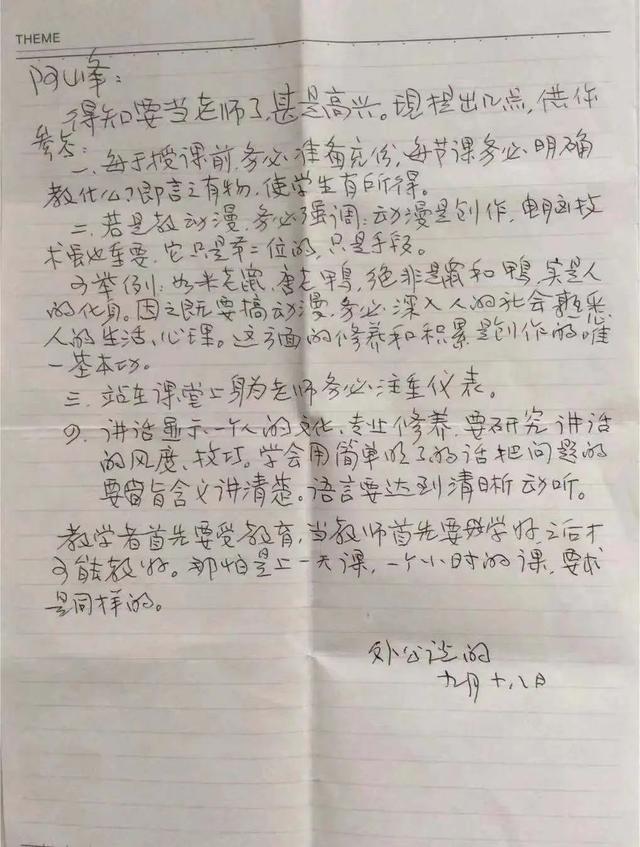 THEME
阿峰：
得知要当老师了，甚是高兴。现提出几点，供你
参考：
一、每于授课前，务必准备充份，每节课务必明确
教什么？即言之有物，使学生有所得。
二、若是教动漫，务必强调：动漫是创作，电脑画技
术虽也重要，它只是第二位的，只是手段。
可举例：如米老鼠、唐老鸭，绝非是鼠和鸭，实是人
的化身。因之既要搞动漫，务必深入人的社会熟悉
人的生活、心理。这方面的修养和积累是创作的唯
一基本功。
三、站在课堂上身为老师务必注重仪表。
四、讲话显示一个人的文化、专业修养，要研究讲话
的风度、技巧。学会用简单明了的话把问题的
要旨含义讲清楚。语言要达到清晰动听。
教学者首先要受教育，当教师首先要学好，之后才
可能教好。那怕是上一天课，一个小时的课，要求
是同样的。
外公谈的
九月十八日